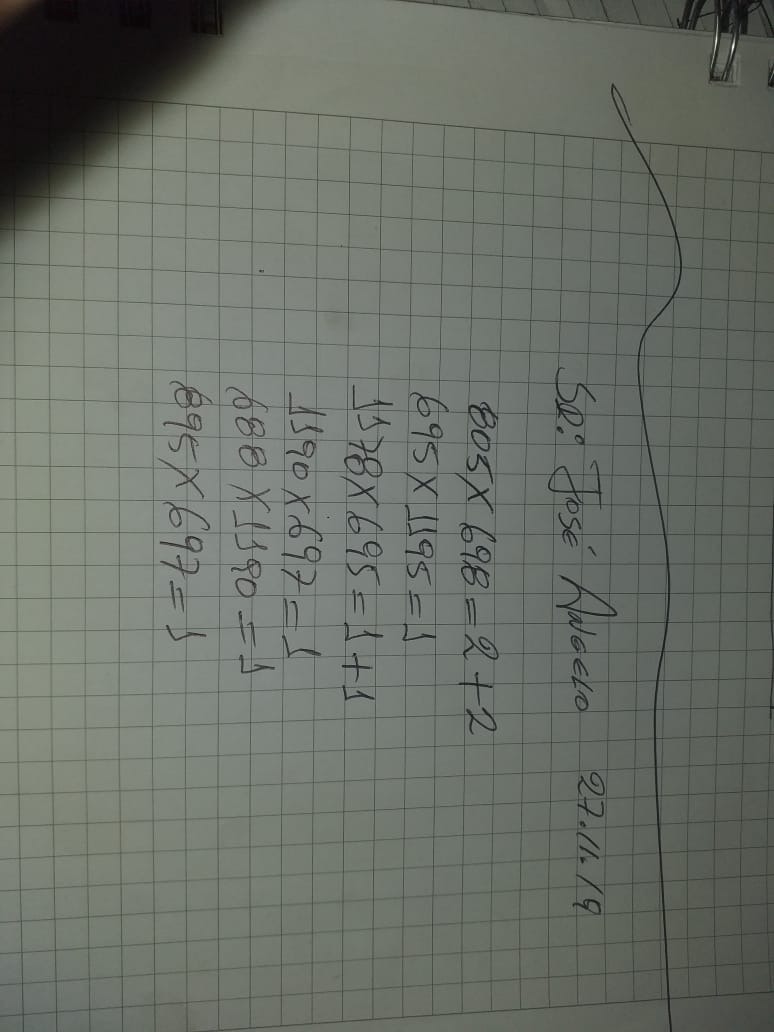 SR: José Angelo 27.11.19
805 X 698 = 2 + 2
695 X 1195 = 1
1178 X 695 = 1 + 1
1190 X 697 = 1
688 X 1190 = 1
895 X 697 = 1